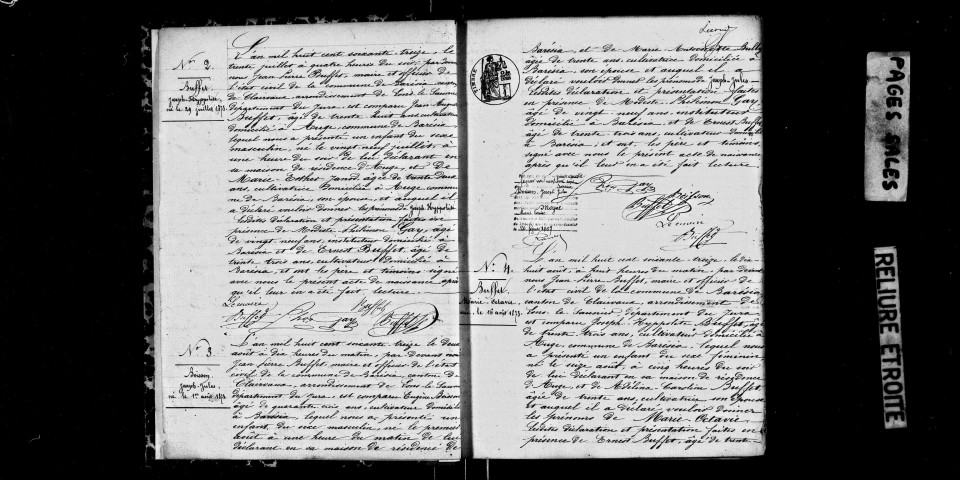 N° 2.
Buffet
Joseph Hyppolite
né le 29 juillet 1873.
L'an mil huit cent soixante treize, le
trente juillet à quatre heures du soir, par devant
nous Jean Pierre Buffet, maire et officier de
l'état civil de la commune de Barésia, canton
de Clairvaux, arrondissement de Lons le Saunier
département du Jura, est comparu Jean Auguste
Buffet, âgé de trente huit ans, cultivateur
domicilié à Auge, commune de Barésia
lequel nous a présenté un enfant du sexe
masculin, né le vingt neuf juillet, à
une heure du soir de lui déclarant en
sa maison de résidence d'Auge, et de
Marie Esther âgée de trente deux
ans, cultivatrice domiciliée à Auge, commu
ne de Barésia, son épouse, et auquel il
a déclaré vouloir donner les prénoms Joseph Hyppolite
lesdites déclaration et présentation faites en
présence de Modeste Philémon Gay, âgé
de vingt neuf ans, instituteur domicilié à
Barésia et de Ernest Buffet, âgé de
trente trois ans, cultivateur domicilié à
Barésia, et ont les père et témoins signé
avec nous le présent acte de naissance après
qu'il leur en a été fait lecture.
Le maire
Buffet Gay Buffet
N° 3
Buisson
Joseph-Jules,
né le 1er août 1873
L'an mil huit cent soixante treize le deux
août à dix heures du matin, par devant nous
Jean Pierre Buffet, maire et officier de l'état
civil de la commune de Barésia, canton de
Clairvaux, arrondissement de Lons le Saunier
département du Jura, est comparu Eugène Buisson
âgé de quarante cinq ans, cultivateur domicilié
à Barésia, lequel nous a présenté un
enfant du sexe masculin, né le premier
août à une heure du matin de lui
déclarant en sa maison de résidence de
Barésia, et de Marie
âgée de trente ans, cultivatrice domiciliée à
Barésia, son épouse et auquel il a
déclaré vouloir donner les prénoms de Joseph-Jules
lesdites déclaration et présentation faites
en présence de Modeste Philémon Gay,
âgé de vingt neuf ans, instituteur
domicilié à Barésia, et de Ernest Buffet,
âgé de trente trois ans, cultivateur domicilié
à Barésia, et ont, les père et témoins,
signé avec nous le présent acte de naissance
après qu'il leur en a été fait lecture
Gay Buisson
Buffet
Le maire
Buffet
N° 4.
Buffet
Marie-Octavie
née le 16 août 1873.
L'an mil huit cent soixante treize, le dix
huit août, à huit heures du matin par devant
nous Jean Pierre Buffet, maire et officier de
l'état civil de la commune de Barésia
canton de Clairvaux, arrondissement de
Lons le Saunier département du Jura
est comparu Joseph Hyppolite Buffet, âgé
de trente trois ans, cultivateur domicilié à
Auge commune de Barésia, lequel nous
a présenté un enfant du sexe féminin
né le seize août, à cinq heures du soir
de lui déclarant en sa maison de résidence
d'Auge, et de Caroline Buffet,
âgée de trente ans, cultivatrice son épouse
et auquel il a déclaré vouloir donner
les prénoms de Marie-Octavie.
lesdites déclaration et présentation faites en
présence de Ernest Buffet, âgé de trente
PAGES SALES
RELIURE ETROITE